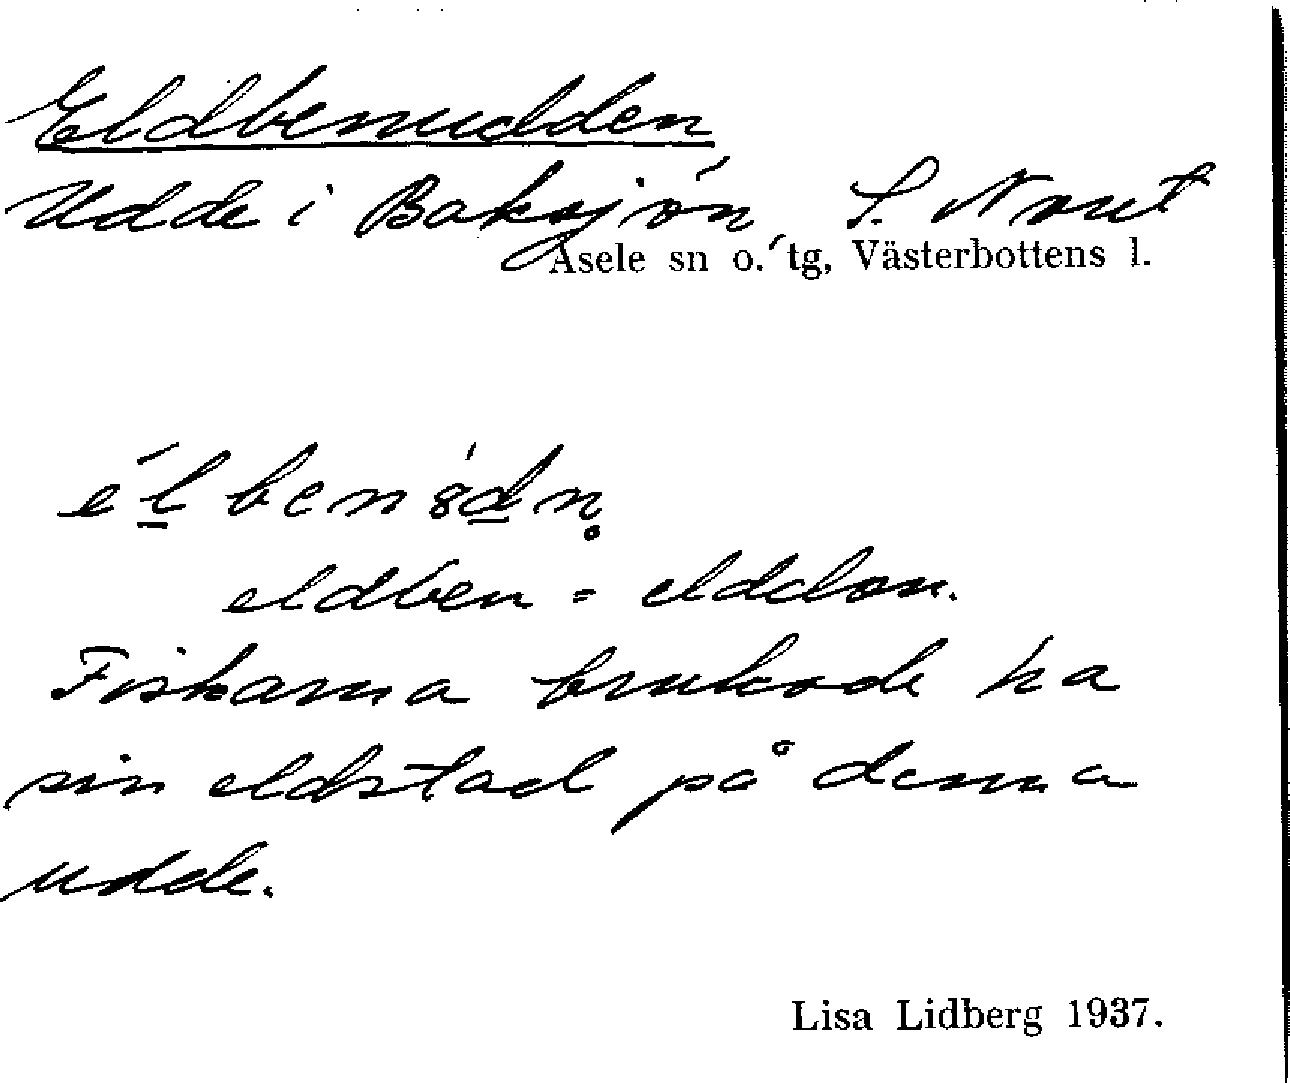 Eldbenudden
Udde i Baksjön, S. Nout
Åsele sn o. tg, Västerbottens l.
élbenúdn̥
eldben = elddon.
Fiskarna brukade ha
sin eldstad på denna
udde.
Lisa Lidberg 1937.